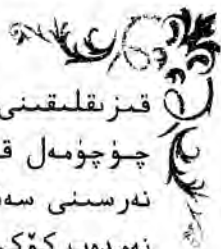 قىزىقلىقىنى
چۆچۈمەل ق
نەرسىنى سەد